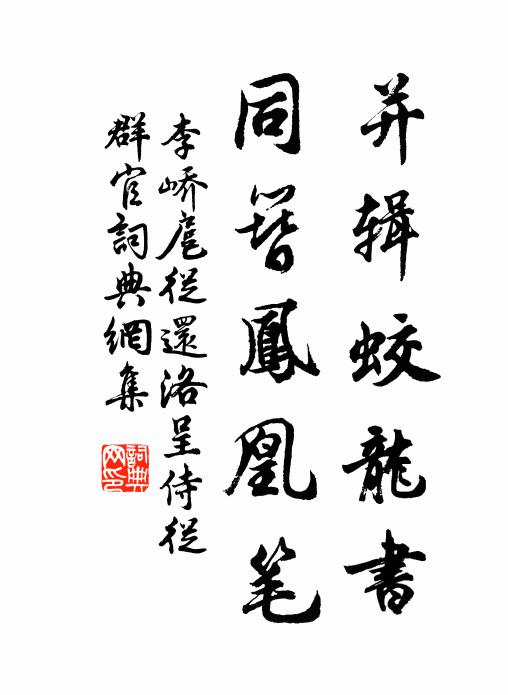 并辑蛟龍書
同簪鳳凰笔
李嶠扈從還洛呈侍從
群官詞典網集
詞典网印